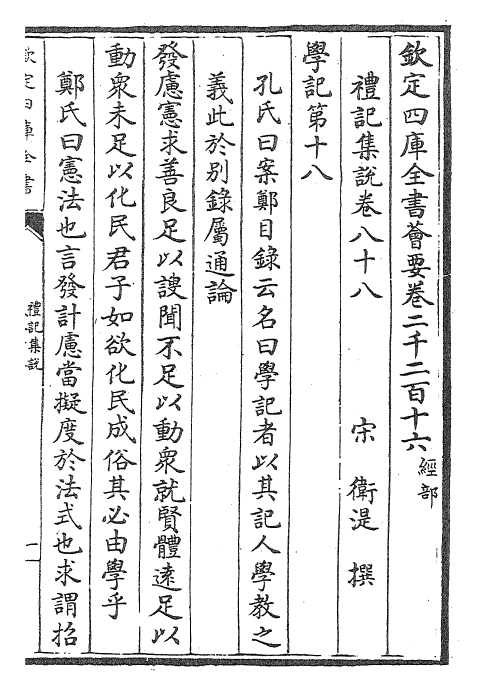 欽定四庫全書薈要卷二千二百十六經部
禮記集說卷八十八　宋　衛湜　撰
學記第十八
孔氏曰案鄭目錄云名曰學記者以其記人學教之
義此於別錄屬通論
發慮憲求善良足以謏聞不足以動衆就賢體遠足以
動衆未足以化民君子如欲化民成俗其必由學乎
鄭氏曰憲法也言發計慮當擬度於法式也求謂招
欽定四庫全書
禮記集說
一